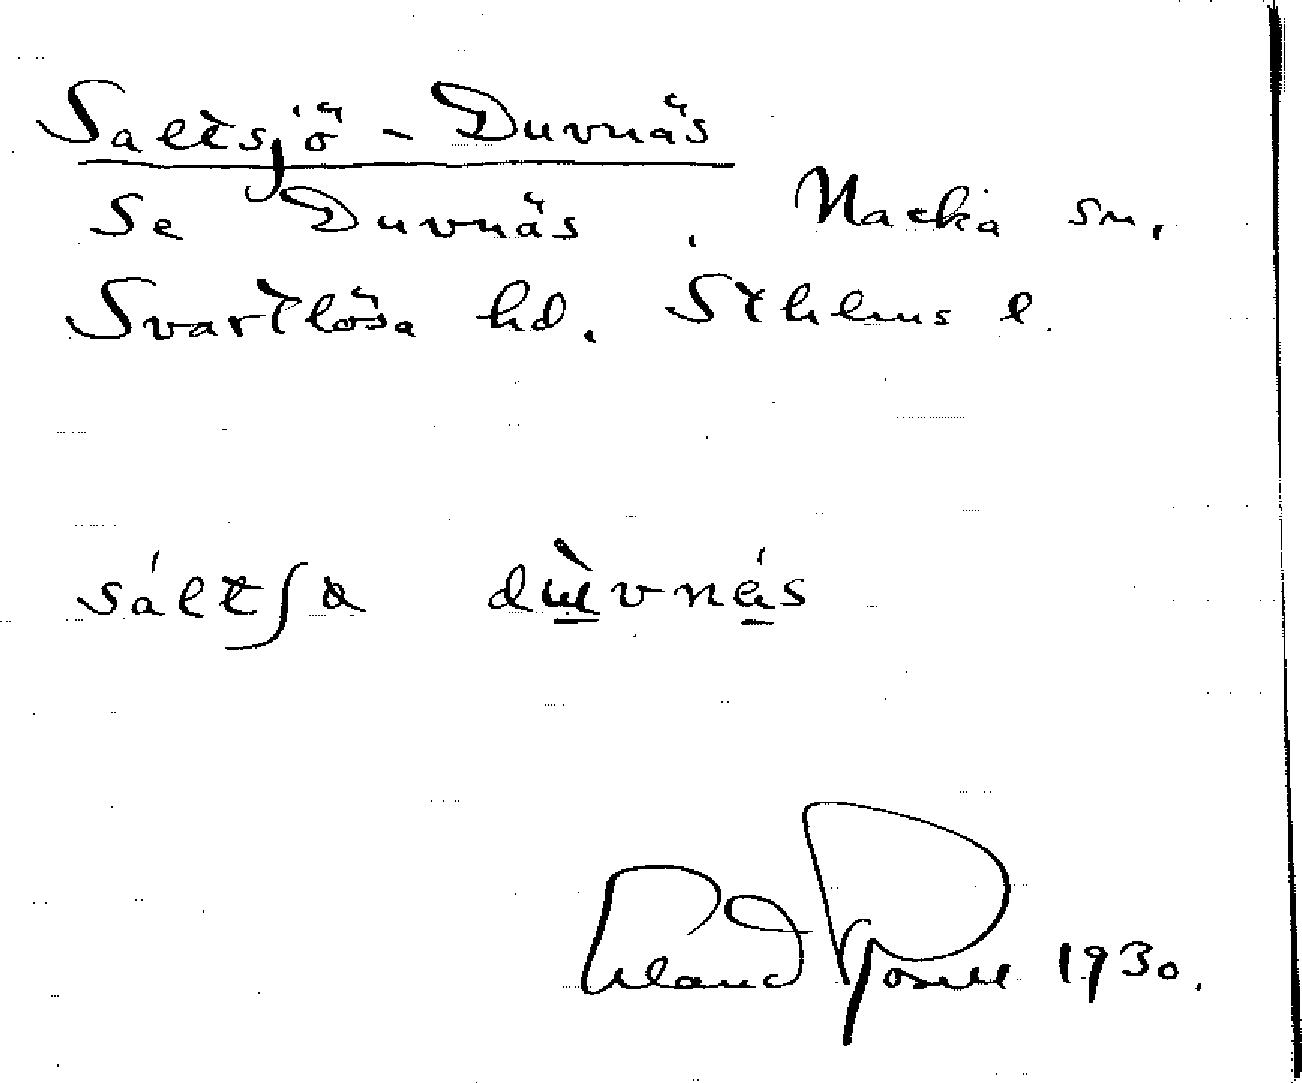 Saltsjö-Duvnäs
Se Duvnäs, Nacka sn,
Svartlösa hd. Sthlms l.
sáltʃɑ dùvnás
Erland Rosell 1930.